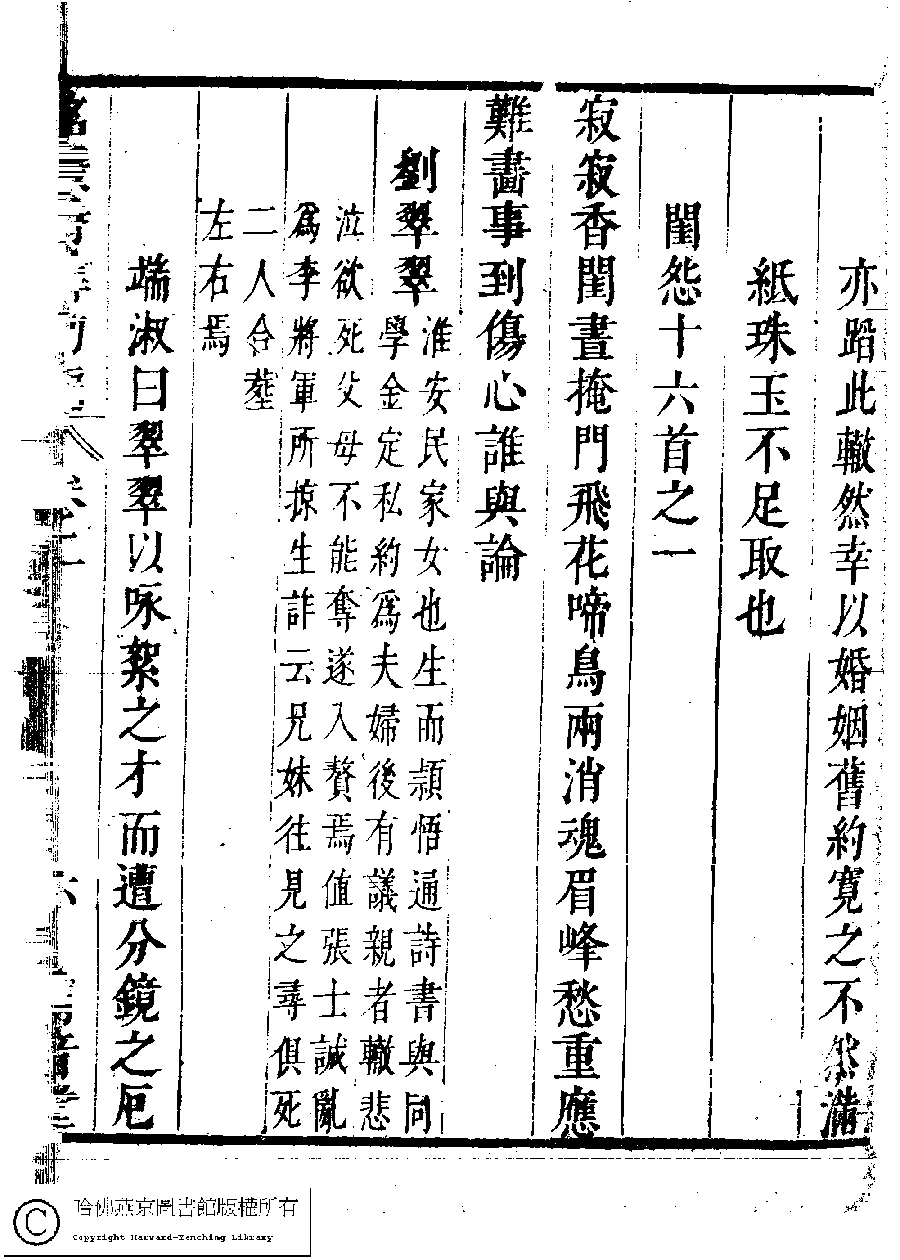 亦蹈此轍然幸以婚姻舊約寛之不然滿
紙珠玉不足取也
閨怨十六首之一
寂寂香閨晝掩門飛花啼鳥兩消魂眉峰愁重應
難畵事到傷心誰與論
劉翠翠
淮安民家女也生而頴悟通詩書與同
學金定私約爲夫婦後有議親者轍悲
泣欲死父母不能奪遂入贅焉值張士誠亂
爲李將軍所掠生詐云兄妹往見之尋俱死
二人合塟
左右焉
端淑曰翠翠以咏絮之才而遭分鏡之厄
卷二
六
哈佛燕京圖書館版權所有
Copyright Harvard-Yenching Library